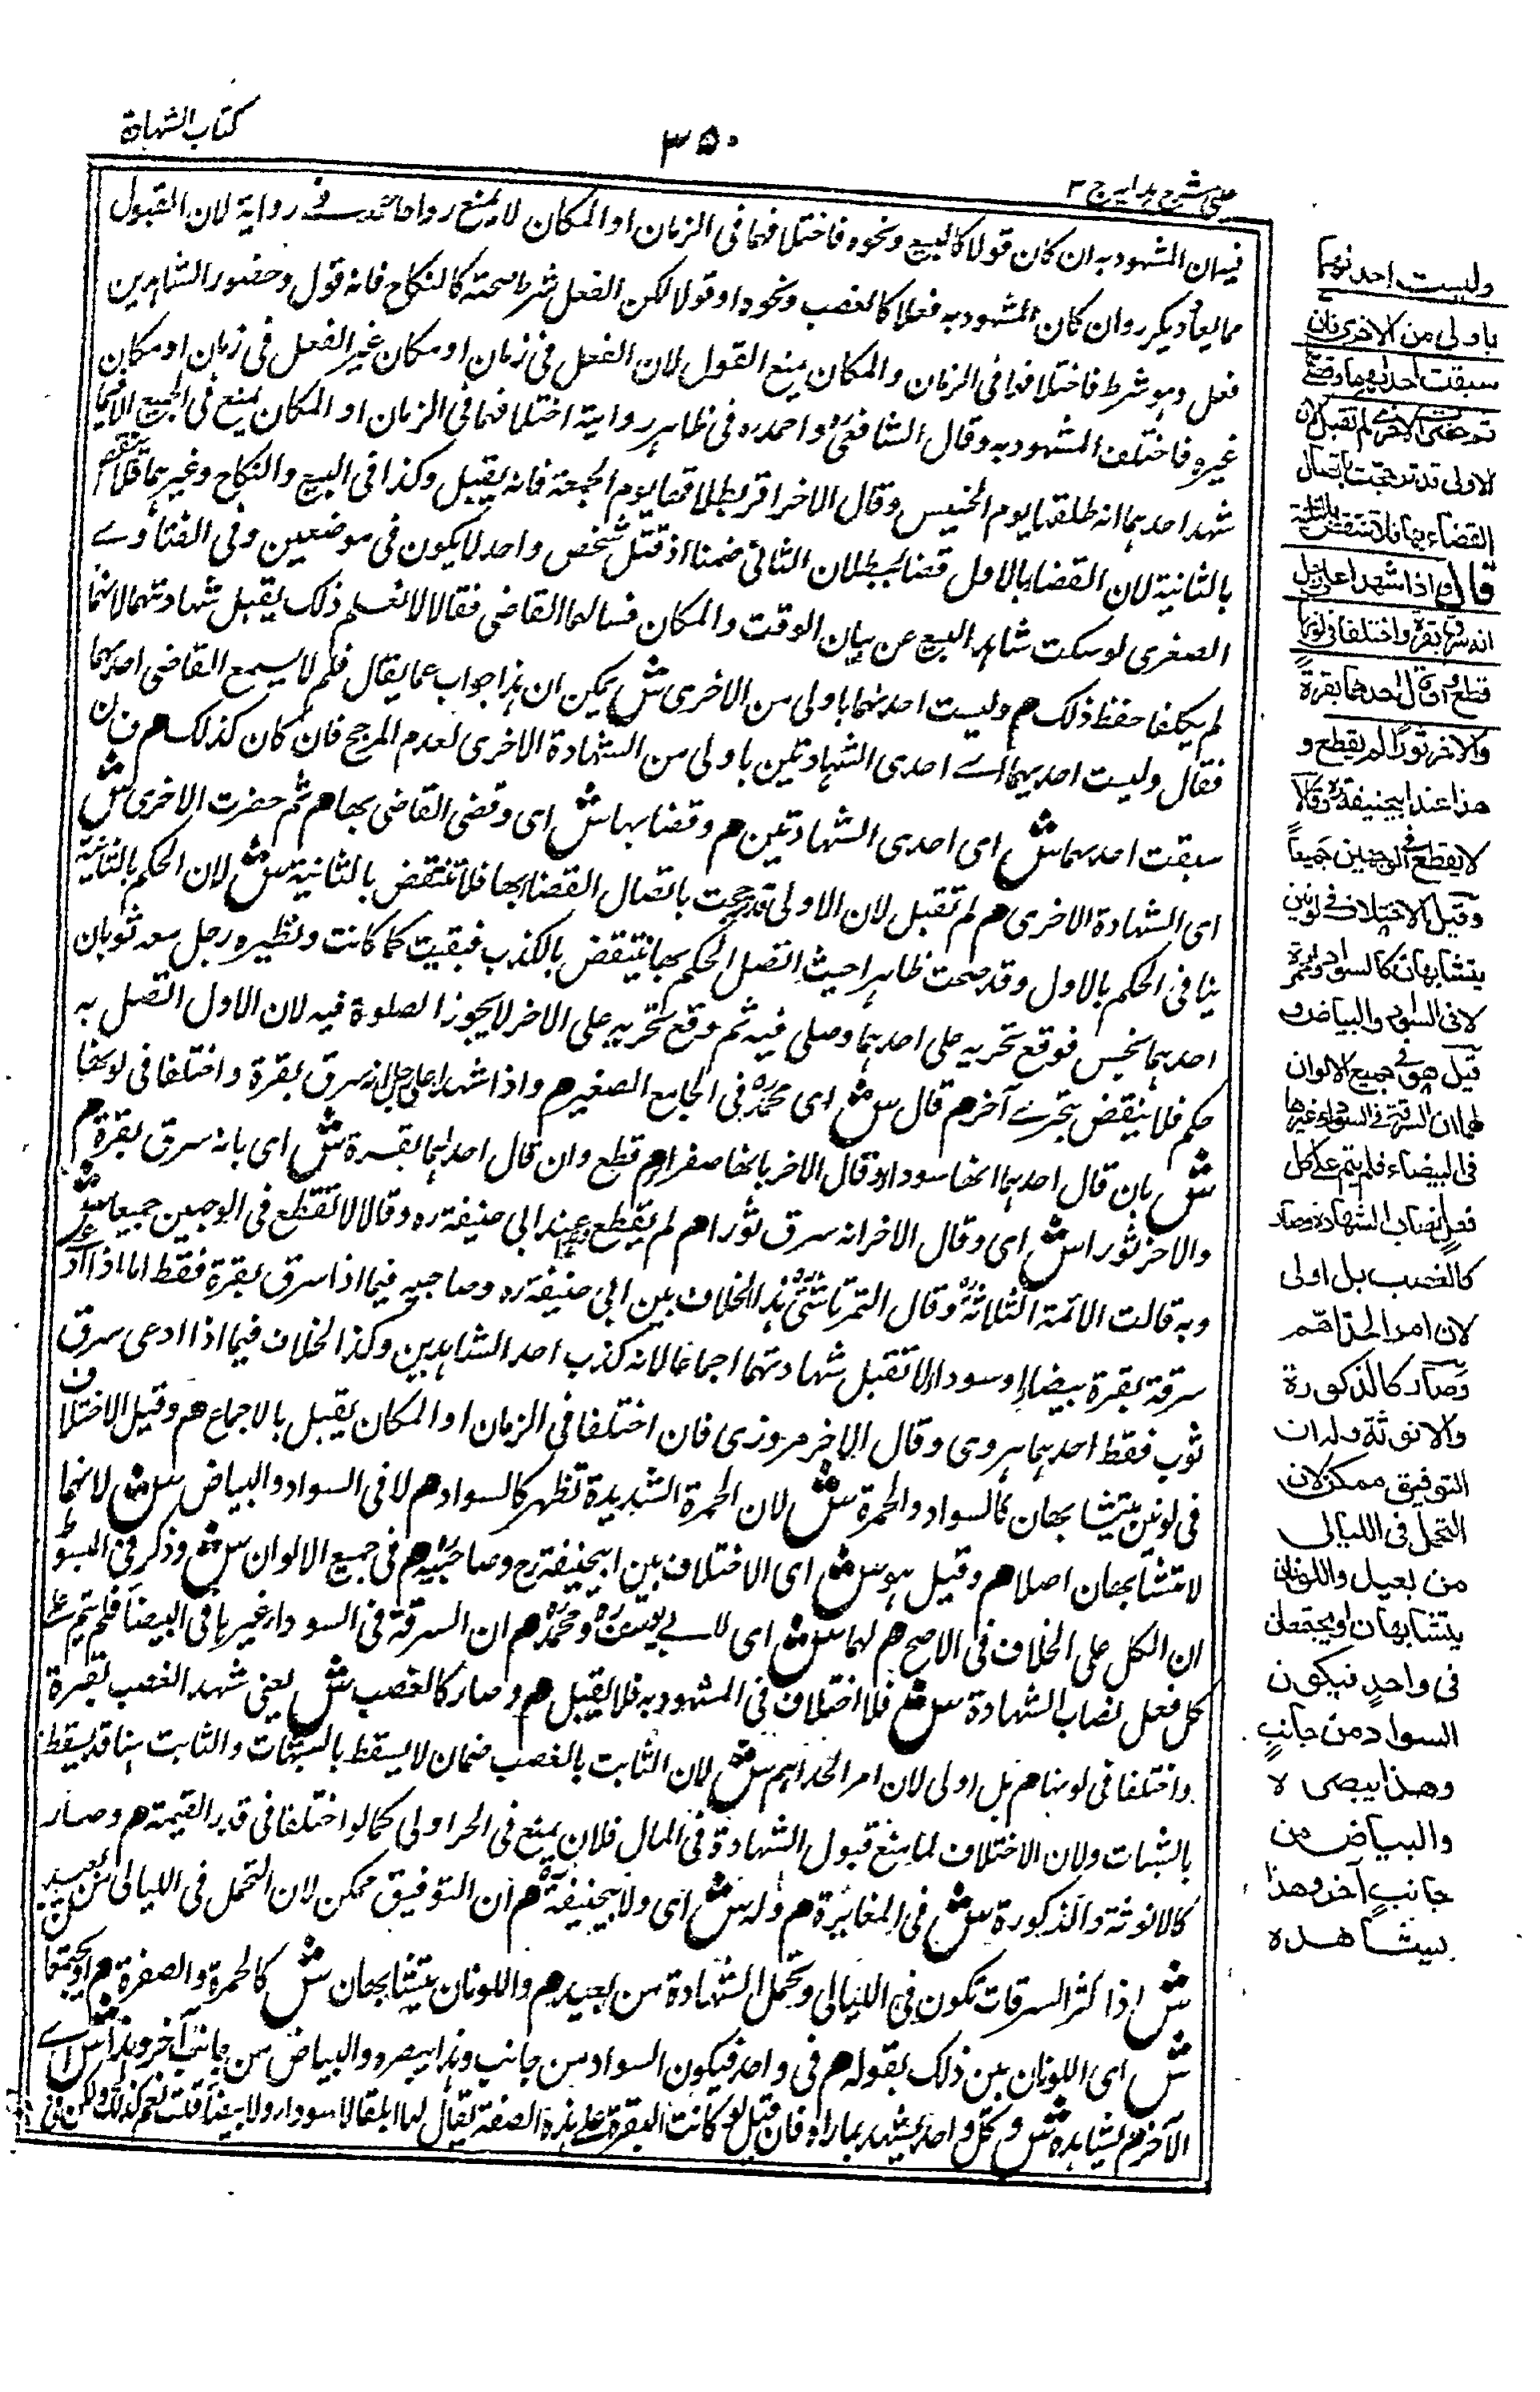 كتاب الشهادة
٣٥٠
عينى شرح هدايه ج ٣
فيان المشهود به ان كان قولا كالبيع ونحوه فاختلافهما فى الزمان او المكان لا يمنع رواحمد فى رواية لان القبول
مما يعاد ويكرر وان كان المشهود به فعلا كالغصب ونحوه او قولا لكن الفعل شرط صحته كالنكاح فانه قول وحضور الشاهدين
فعل وهو شرط فاختلافهما فى الزمان والمكان يمنع القبول لان الفعل فى زمان او مكان غير الفعل فى زمان او مكان
غيره فاختلف المشهود به وقال الشافعى واحمد ره فى ظاهر رواية اختلافهما فى الزمان او المكان يمنع فى الجميع الا فيما
شهد احدهما انه طلقها يوم الخميس وقال الاخر اقر بطلاقها يوم الجمعة فانه يقبل وكذا فى البيع والنكاح وغيرهما فلا ينتقض
بالثانية لان القضاء بالاول قضاء ببطلان الثانى ضمنا اذ قتل شخص واحد لا يكون فى موضعين وفى الفتاوے
الصغرى لو سكت شاهد البيع عن بيان الوقت والمكان فسالهما القاضى فقالا لا نعلم ذلك يقبل شهادتهما لانهما
لم يكلفا حفظ ذلك هم وليست احدهما باولى من الاخرى ش يمكن ان هذا جواب عما يقال فلم لا يسمع القاضى احدهما
فقال وليست احديهما اے احدى الشهادتين باولى من الشهادة الاخرى لعدم المرجح فان كان كذلك هم فان
سبقت احدهما ش اى احدى الشهادتين هم وقضا بها ش اى وقضى القاضى بها هم ثم حضرت الاخرى ش
اى الشهادة الاخرى هم لم تقبل لان الاولى قد رجحت باتصال القضاء بها فلا تنتقض بالثانية ش لان الحكم بالثانية
ينافى الحكم بالاول وقد صحت ظاهرا حيث اتصل الحكم بها فتنتقض بالكذب فبقيت كما كانت ونظيره رجل معه ثوبان
احدهما نجس فوقع تحريه على احدهما وصلى فيه ثم وقع تحريه على الاخر لا يجوز الصلوة فيه لان الاول اتصل به
حكم فلا ينقض بتحرے آخر هم قال ش اى محمد فى الجامع الصغير هم واذا شهدا على رجل انه سرق بقرة واختلفا فى لونها
ش بان قال احدهما انها سوداء وقال الاخر بانها صفراء هم قطع وان قال احدهما بقرة ش اى بانه سرق بقرة هم
والاخر ثورا ش اى وقال الاخر انه سرق ثورا هم لم يقطع عند ابى حنيفة ره وقالا لا تقطع فى الوجهين جميعا ش
وبه قالت الائمة الثلاثة وقال التمرتاشى هذا الخلاف بين ابى حنيفة ره وصاحبيه فيما اذا سرق بقرة فقط اما اذا ادعى
سرقة بقرة بيضاء او سوداء لا تقبل شهادتهما اجماعا لانه كذب احد الشاهدين وكذا الخلاف فيما اذا ادعى سرق
ثوب فقط احدهما هروى وقال الاخر مروزى فان اختلفا فى الزمان او المكان يقبل بالاجماع هم وقيل الاختلاف
فى لونين يتشابهان كالسواد والحمرة ش لان الحمرة الشديدة تظهر كالسواد هم لا فى السواد والبياض ش لانها
لا تتشابهان اصلا هم وقيل هو ش اى الاختلاف بين ابيحنيفة رح وصاحبيه هم فى جميع الالوان ش وذكر فى المبسوط
ان الكل على الخلاف فى الاصح هم لهما ش اى لابے يوسف ومحمد هم ان السرقة فى السوداء غيرها فى البيضاء فلم يتم على
كل فعل نصاب الشهادة ش فلا اختلاف فى المشهود به فلا يقبل هم وصار كالغصب ش يعنى شهد الغصب بقرة
واختلفا فى لونها هم بل اولى لان امر الحد اهم ش لان الثابت بالغصب ضمان لا يسقط بالشبهات والثابت هنا قد يسقط
بالشبهات ولان الاختلاف لما منع قبول الشهادة فى المال فلان يمنع فى الحد اولى كما لو اختلفا فى قدر القيمة هم وصار
كالانوثة والذكورة ش فى المغايرة هم وله ش اى ولابيحنيفة هم ان التوفيق ممكن لان التحمل فى الليالى من بعيد
ش اذ اكثر السرقات تكون فى الليالى وتحمل الشهادة من بعيد هم واللونان يتشابهان ش كالحمرة والصفرة هم او يجتمعا
ش اى اللونان بين ذلك بقوله هم فى واحد فيكون السواد من جانب وهذا يبصره والبياض من جانب آخر وهذا ش اے
الآخر هم يشاهده ش وكل واحد يشهد بما راه فان قيل لو كانت البقرة على هذه الصفة يقال لها ابلقا لا سوداء ولا بيضا قلت نعم كذلك ولكن فى
وليست احدهما
باولى من الاخرى فان
سبقت احدیهما وقضے
ثم حضرت الاخرے لم تقبل لان
الاولى قد ترجحت باتصال
القضاء بها فلا تنتقض بالثانية
قال واذا شهدا على رجل
انه سرق بقرة واختلفا فى لونها
قطع وان قال احدهما بقرة
والاخر ثورا لم يقطع و
هذا عند ابيحنيفة وقالا
لا يقطع فى الوجهين جميعاً
وقيل الاختلاف فے لونين
يتشابهان كالسواد والحمرة
لا فى السواد والبياض و
قيل هو فى جميع الالوان
لهما ان السرقة فے السوداء غيرها
فى البيضاء فلم يتم علے كل
فعل نصاب الشهادة وصار
كالغصب بل اولى
لان امر الحد اهم
وصار كالذكورة
والانوثة وله ان
التوفيق ممكن لان
التحمل فى الليالى
من بعيد واللونان
يتشابهان او يجتمعان
فى واحدٍ فيكون
السواد من جانبٍ
وهذا يبصره
والبياض من
جانبٍ آخر وهذا
يشاهده